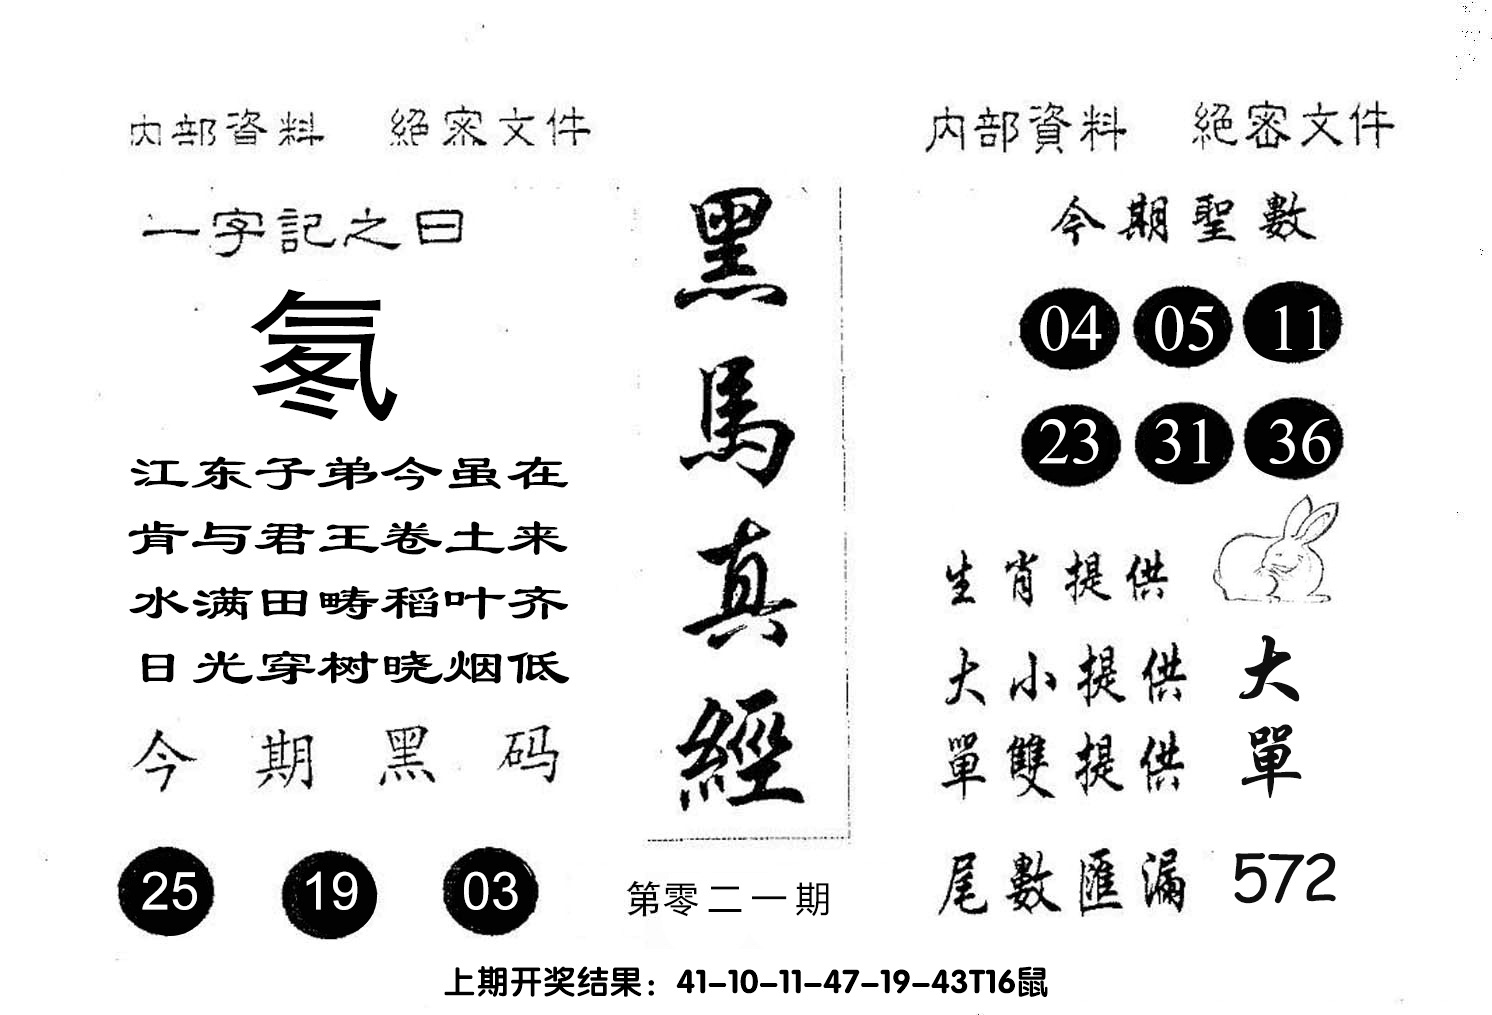 内部資料　絕密文件
一字記之曰
氡
江东子弟今虽在
肯与君王卷土来
水满田畴稻叶齐
日光穿树晓烟低
今期黑码
25 19 03
黑馬真經
第零二一期
内部資料　絕密文件
今期聖數
04 05 11
23 31 36
生肖提供
大小提供 大
單雙提供 單
尾數匯漏 572
上期开奖结果：41-10-11-47-19-43T16鼠